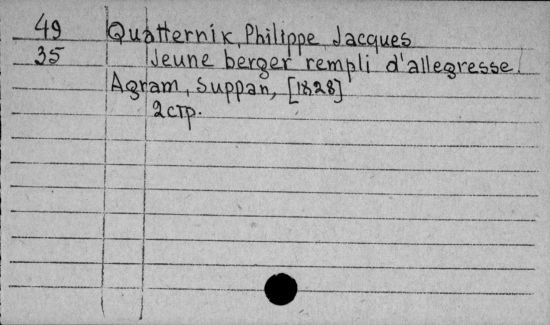 49 Quatternik, Philippe Jacques
35 Jeune berger rempli d'allegresse.
Agram, Suppan, [1828]
2 стр.